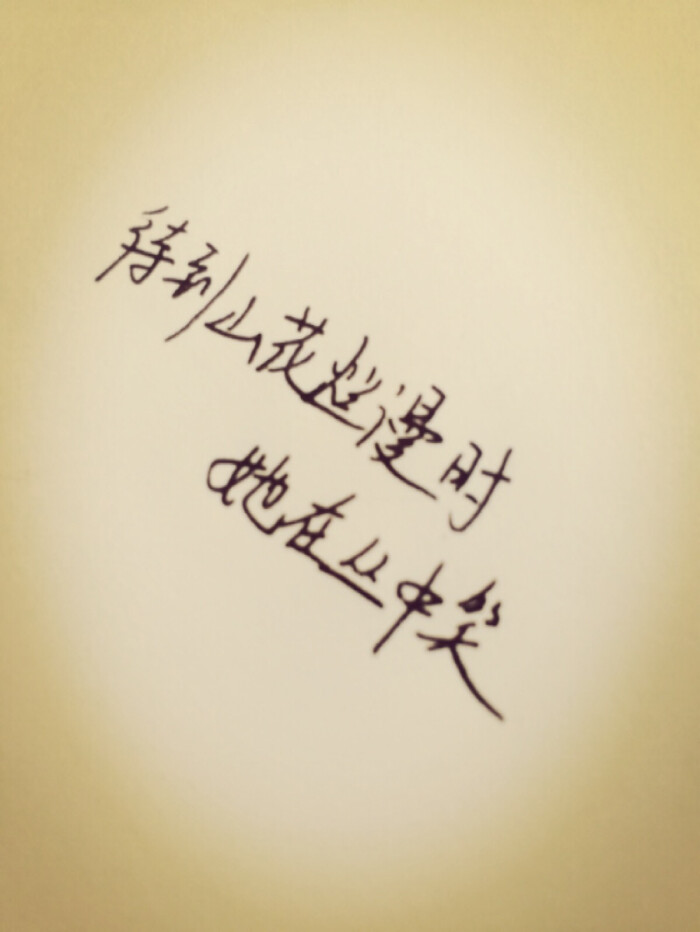 待到山花烂漫时
她在丛中笑